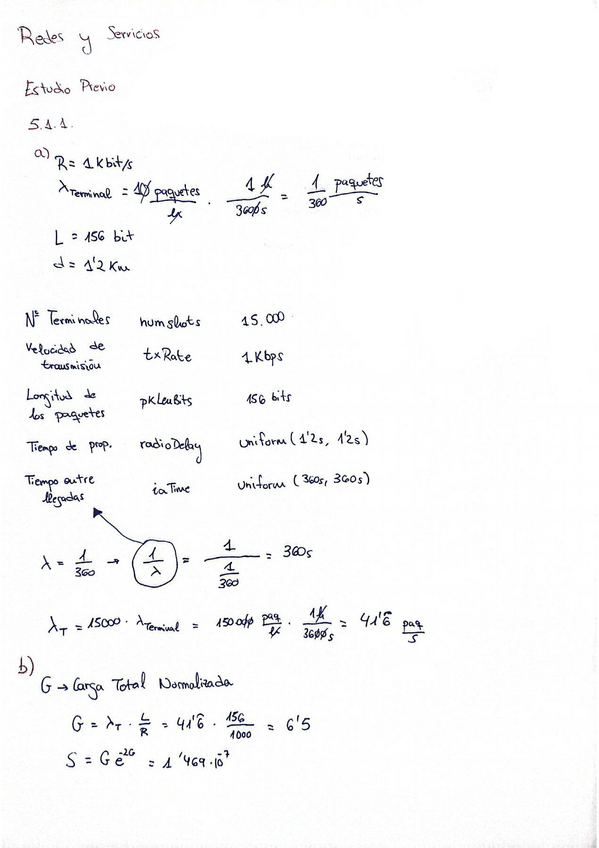 Redes y Servicios
Estudio Previo
5.1.1.
a) R = 1 Kbit/s
λTerminal = 10 paquetes/hx · 1 h/3600s = 1/360 paquetes/s
L = 156 bit
d = 1'2 Km
Nº Terminales numshots 15.000
Velocidad de transmisión txRate 1 Kbps
Longitud de los paquetes pKLenBits 156 bits
Tiempo de prop. radioDelay Uniform (1'2s, 1'2s)
Tiempo entre llegadas iaTime Uniform (360s, 360s)
λ = 1/360 → 1/λ = 1/(1/360) = 360s
λT = 15000 · λTerminal = 150000 paq/h · 1h/3600s = 41'6̂ paq/s
b)
G → Carga Total Normalizada
G = λT · L/R = 41'6̂ · 156/1000 = 6'5
S = G e^-2G = 1'469·10^-7